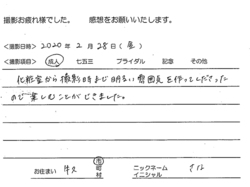 撮影お疲れ様でした。 感想をお願いいたします。
<撮影日時> 2020年 2月 28日(金)
<撮影項目> 成人 七五三 ブライダル 記念 その他
化粧室から撮影時まで明るい雰囲気を作ってくださった
ので楽しむことができました。
お住まい 牛久 市 町 村 ニックネーム イニシャル